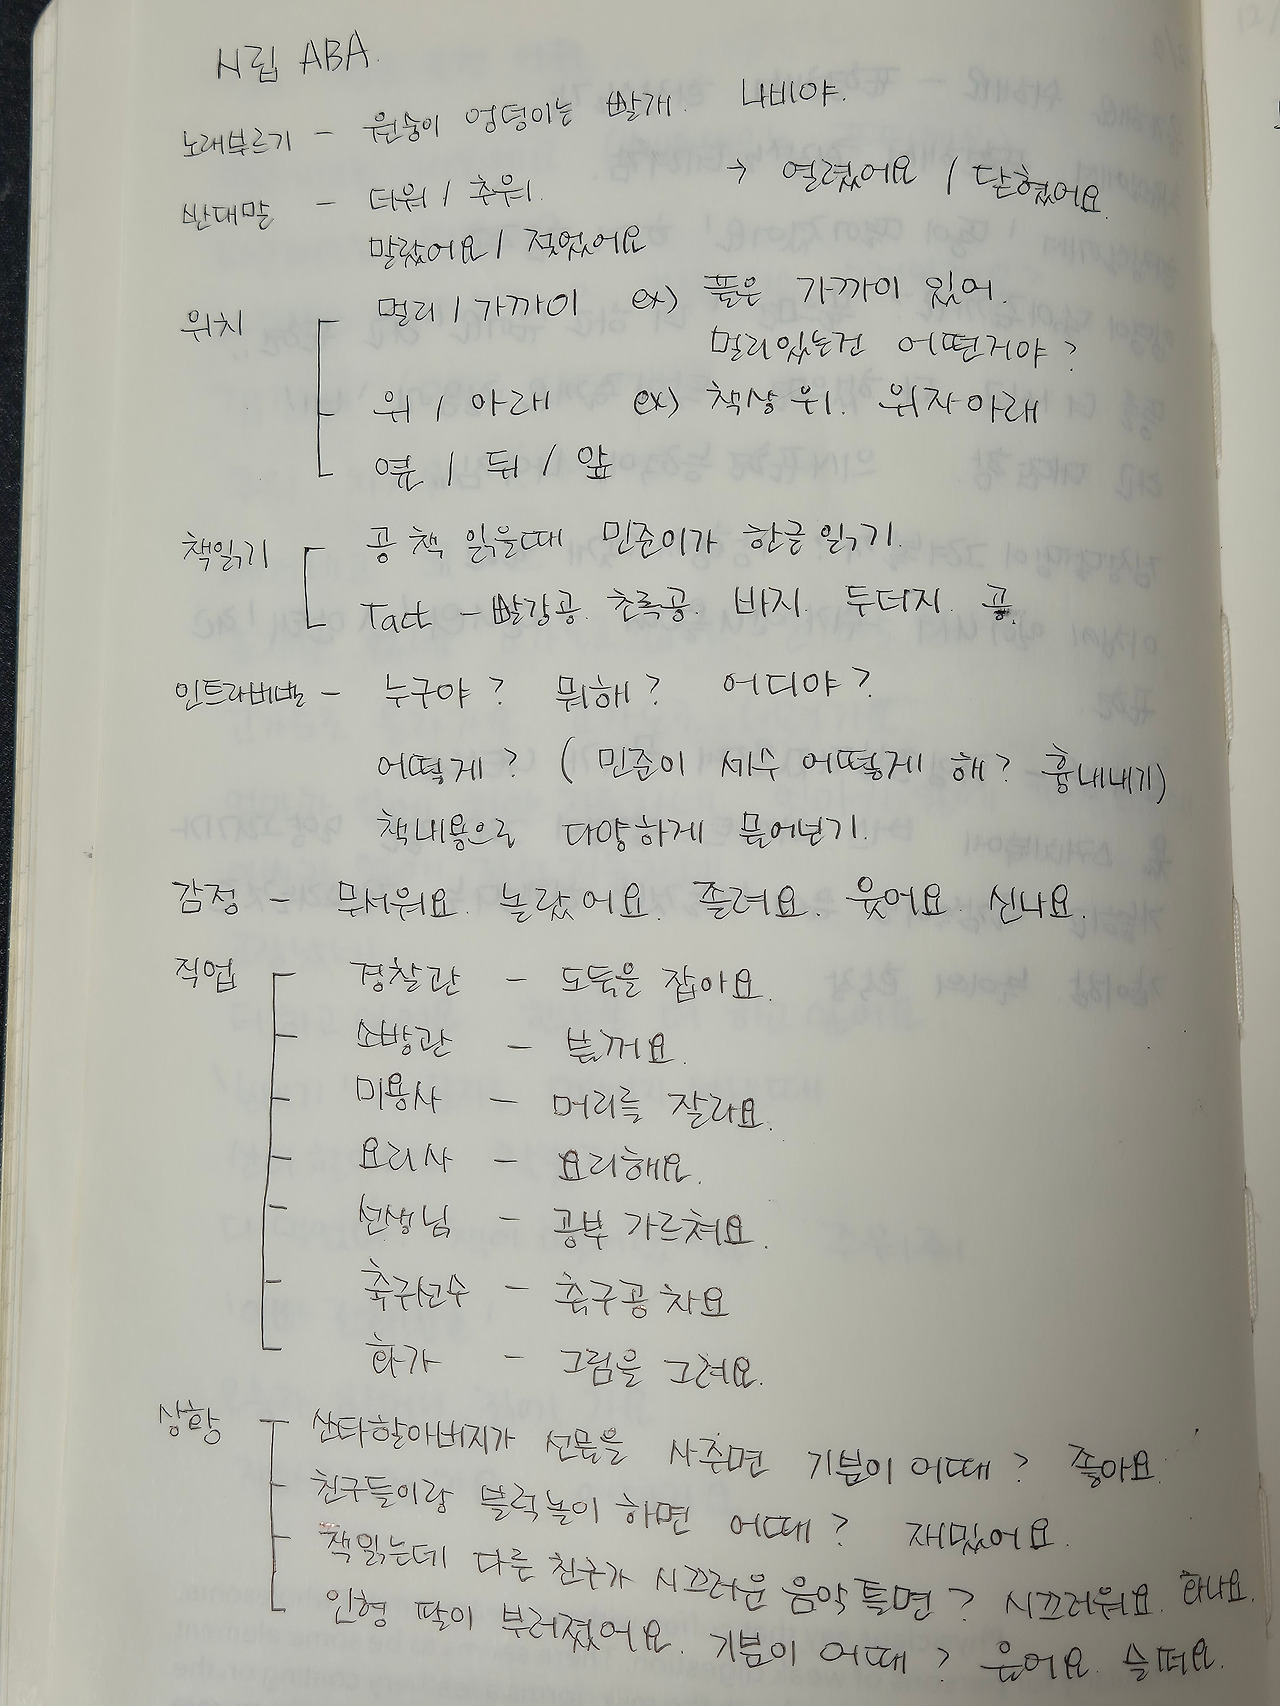 시립 ABA.
노래부르기 - 원숭이 엉덩이는 빨개. 나비야.
반대말 - 더워 / 추워. → 열렸어요 / 닫혔어요.
말랐어요 / 젖었어요
위치 멀리 / 가까이 ex) 풀은 가까이 있어.
멀리있는건 어떤거야?
위 / 아래 ex) 책상 위. 의자아래
옆 / 뒤 / 앞
책읽기 공 책 읽을때 민준이가 한글 읽기.
Tact - 빨강공. 초록공. 바지. 두더지. 공.
인트라버벌 - 누구야? 뭐해? 어디야?
어떻게? (민준이 세수 어떻게 해? 흉내내기)
책내용으로 다양하게 물어보기.
감정 - 무서워요. 놀랐어요. 졸려요. 웃어요. 신나요.
직업 경찰관 - 도둑을 잡아요.
소방관 - 불꺼요.
미용사 - 머리를 잘라요.
요리사 - 요리해요.
선생님 - 공부 가르쳐요.
축구선수 - 축구공 차요
화가 - 그림을 그려요.
상황 산타할아버지가 선물을 사주면 기분이 어때? 좋아요.
친구들이랑 블럭놀이 하면 어때? 재밌어요.
책읽는데 다른 친구가 시끄러운 음악 틀면? 시끄러워요. 화나요.
인형 팔이 부러졌어요. 기분이 어때? 울어요. 슬퍼요.